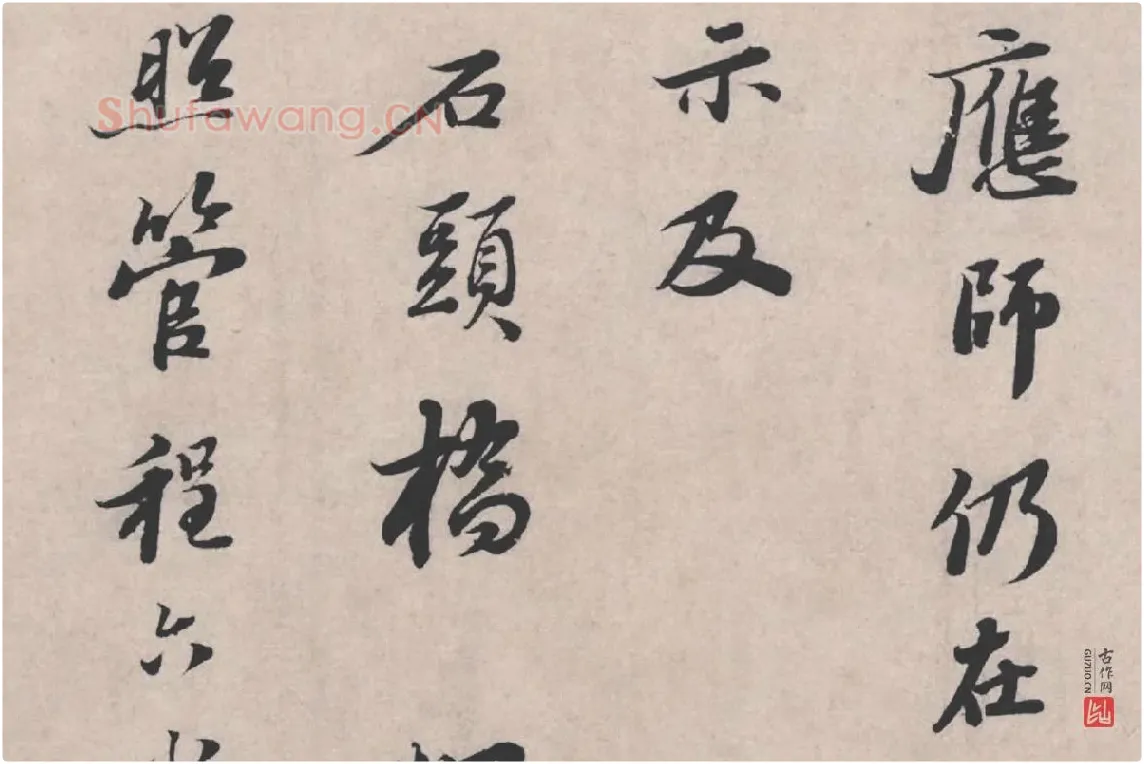 應師仍在
示及
石頭橋
照管程六
Shufawang.CN
古作网
GUZUO.CN